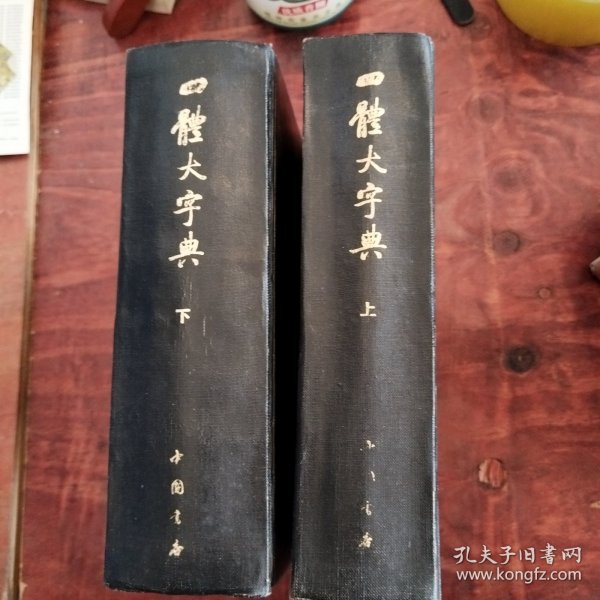 四體大字典
下
中国书店
四體大字典
上
书店
孔夫子旧书网
www.kongfz.com